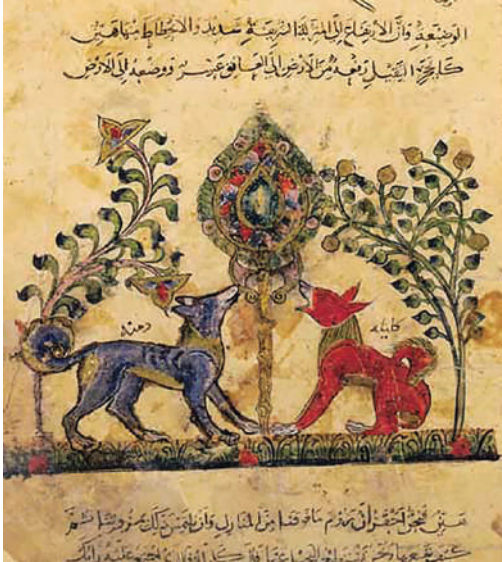 الوضيعة وان الارتفاع إلى المنزلة الشريفة شديد والانحطاط منها هين
كالحجر الثقيل رفعه من الأرض إلى العاتق عسير ووضعه إلى الأرض
كليله
دمنه
هين فنحن احق ان نروم ما فوقنا من المنازل وان نلتمس ذلك بمروتنا ثم
كيف